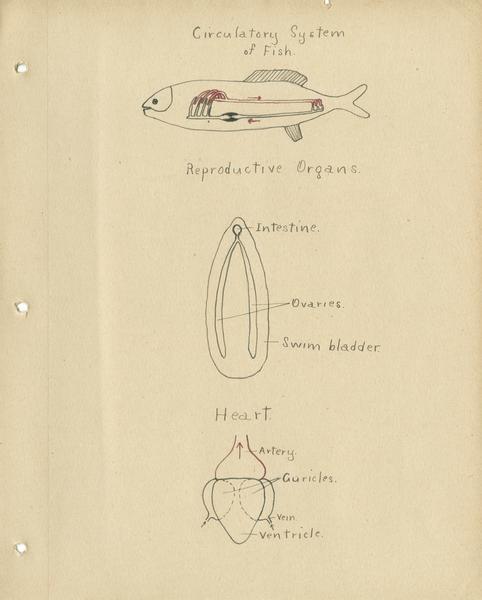 Circulatory System
of Fish.
Reproductive Organs.
Intestine.
Ovaries.
Swim bladder.
Heart.
Artery.
Auricles.
Vein.
Ventricle.